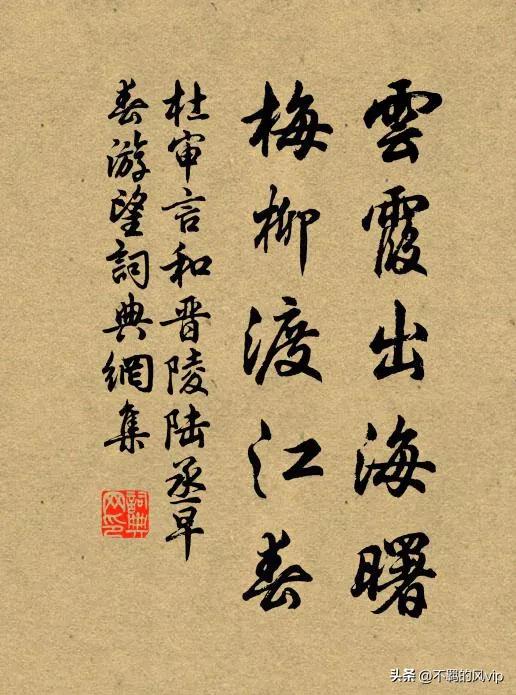 雲霞出海曙
梅柳渡江春
杜审言和晋陵陆丞早
春游望詞典網集
詞典
网印
头条 @不羁的风vip